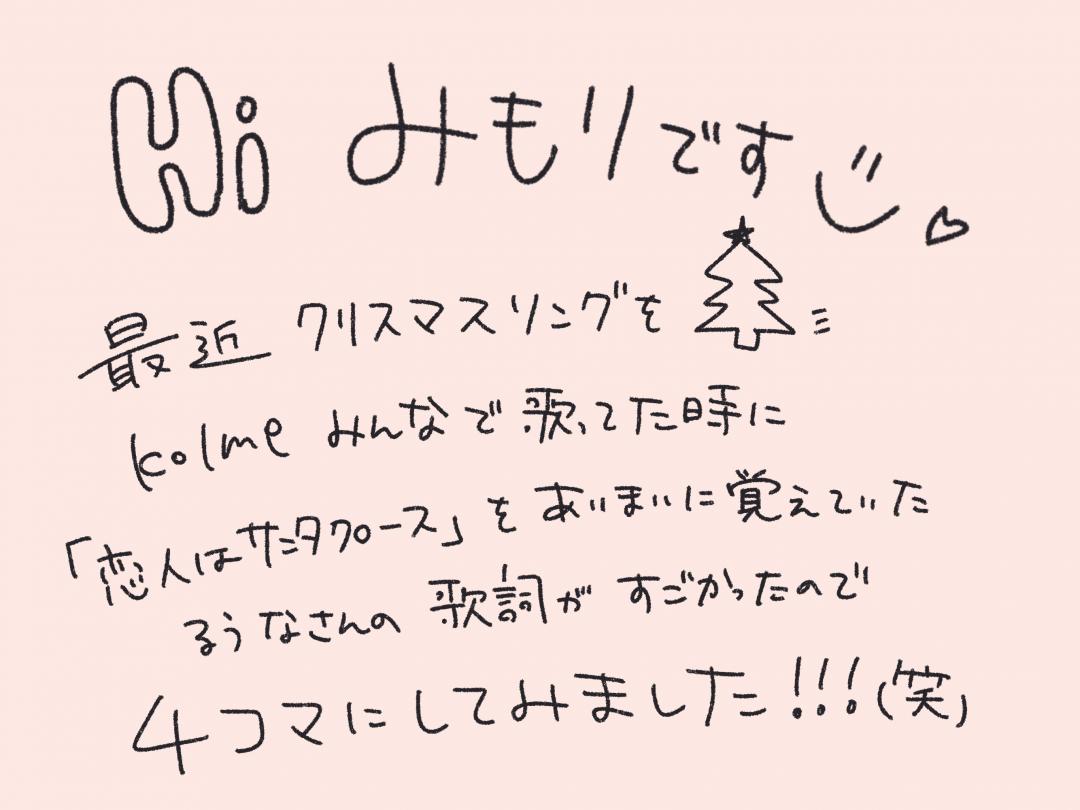 Hi みもりです
最近 クリスマスソングを
kolme みんなで歌ってた時に
「恋人はサンタクロース」を あいまいに覚えていた
るうなさんの 歌詞が すごかったので
4コマにしてみました!!!(笑)